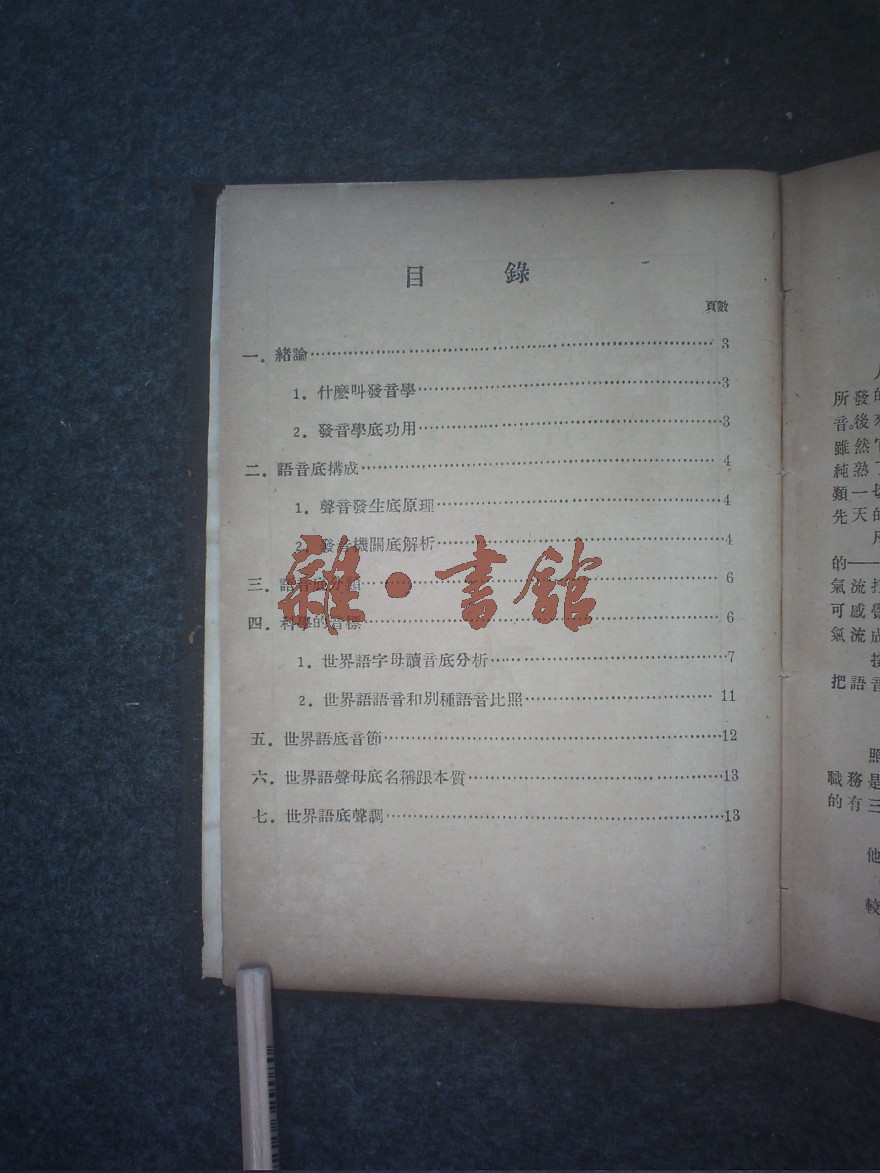 目 錄
頁數
一. 緒論 3
1. 什麽叫發音學 3
2. 發音學底功用 3
二. 語音底構成 4
1. 聲音發生底原理 4
2. 發音機關底解析 4
三. 語音底分類 6
四. 科學的音標 6
1. 世界語字母讀音底分析 7
2. 世界語語音和別種語音比照 11
五. 世界語底音節 12
六. 世界語聲母底名稱跟本質 13
七. 世界語底聲調 13
雜·書館
所發的
音。後
雖然
純熟
類一切
先天的
的——
氣流
可感覺
氣流成
把語音
照
職務是
的有三
他
較